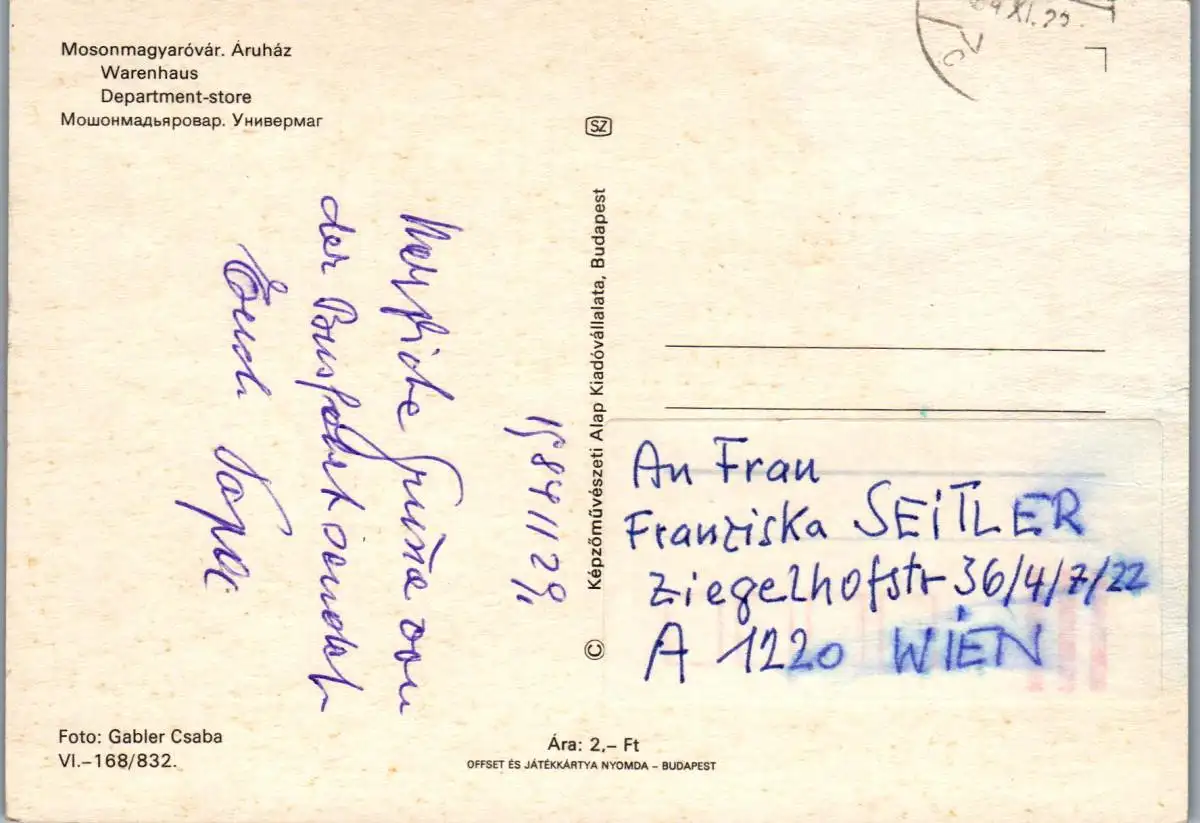 Mosonmagyaróvár. Áruház
Warenhaus
Department-store
Мошонмадьяровар. Универмаг
SZ
Képzőművészeti Alap Kiadóvállalata, Budapest
©
1984 11 29
Herzliche Grüße von
der Busfahrt sendet
An Frau
Franziska SEITLER
Ziegelhofstr 36/4/7/22
A 1220 WIEN
Foto: Gabler Csaba
VI.–168/832.
Ára: 2,– Ft
OFFSET ÉS JÁTÉKKÁRTYA NYOMDA – BUDAPEST